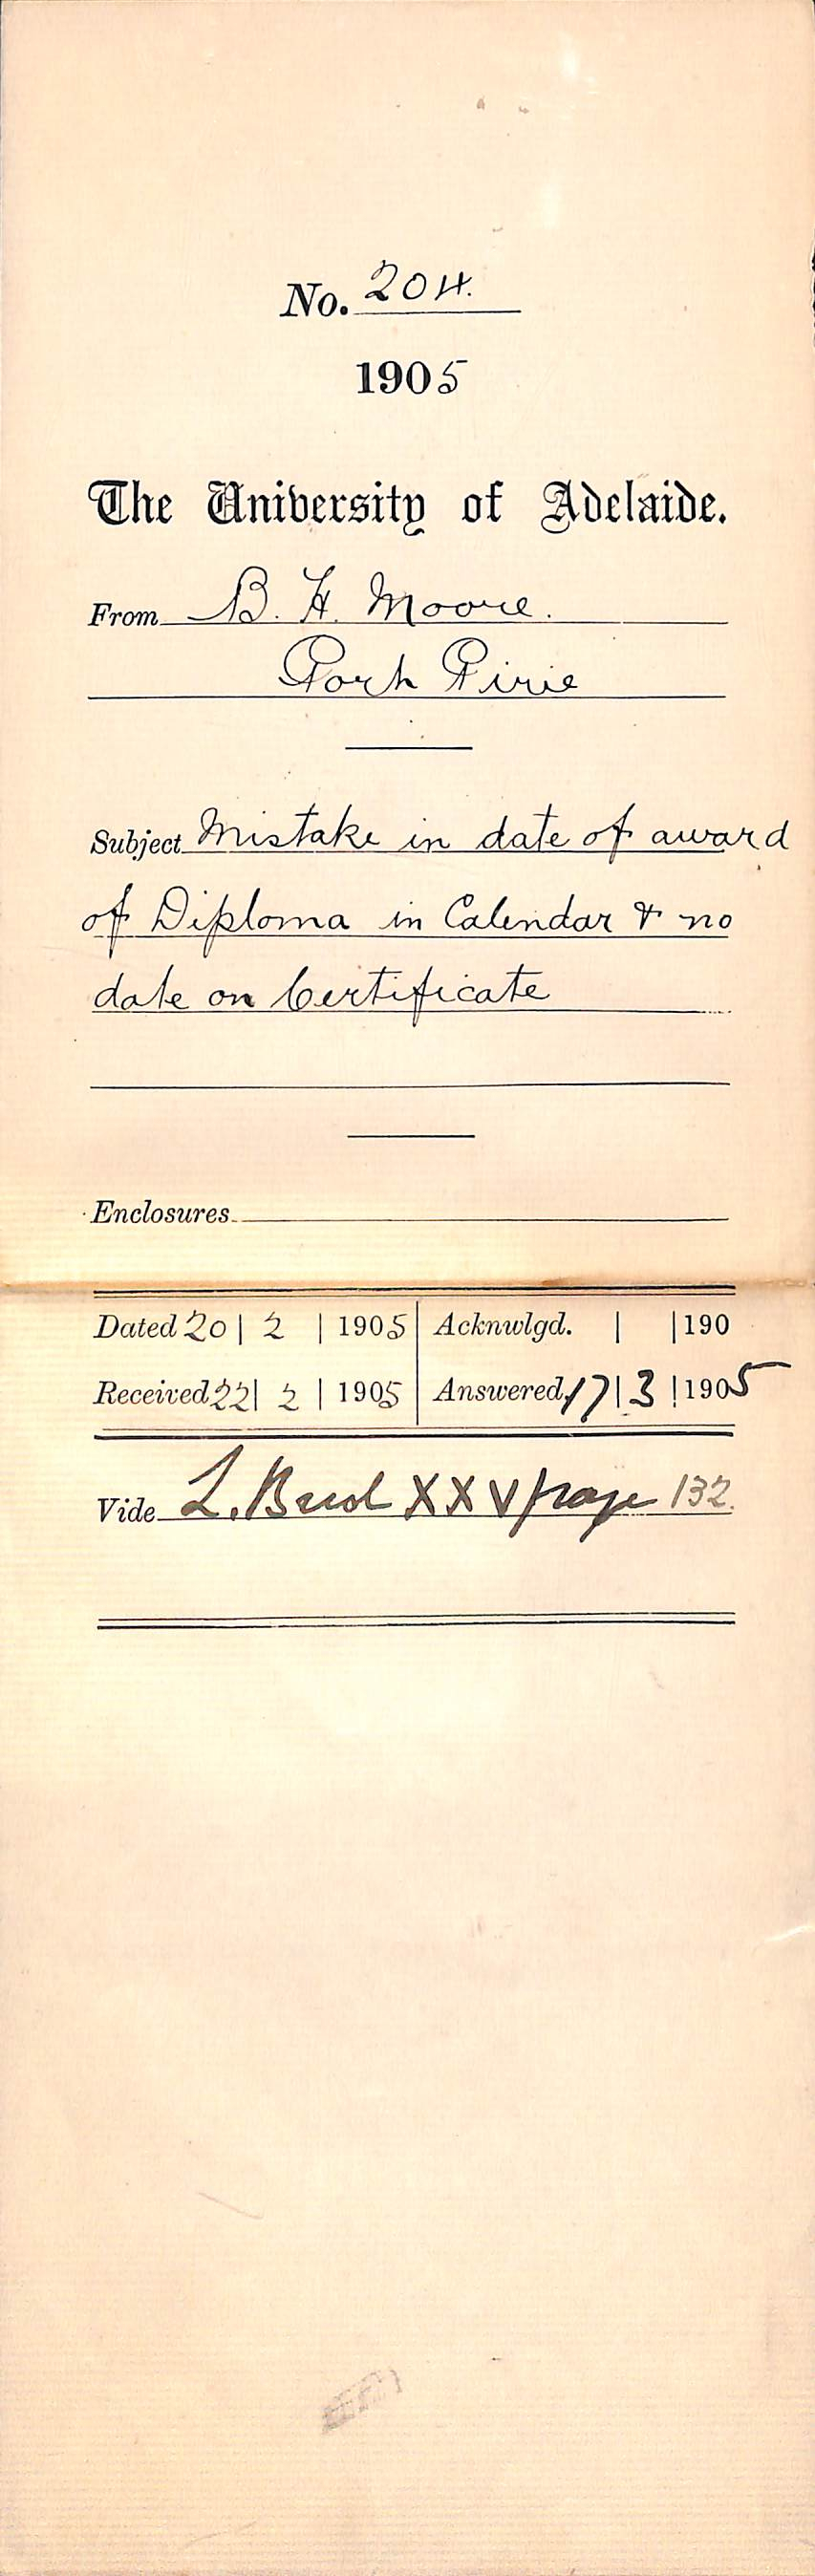 No. 204.
1905
The University of Adelaide.
From B. H. Moore.
Port Pirie
Subject Mistake in date of award
of Diploma in Calendar & no
date on Certificate
Enclosures
Dated 20 | 2 | 1905 Acknwlgd. | | 190
Received 22 | 2 | 1905 Answered 17 | 3 | 1905
Vide L. XXV page 132.